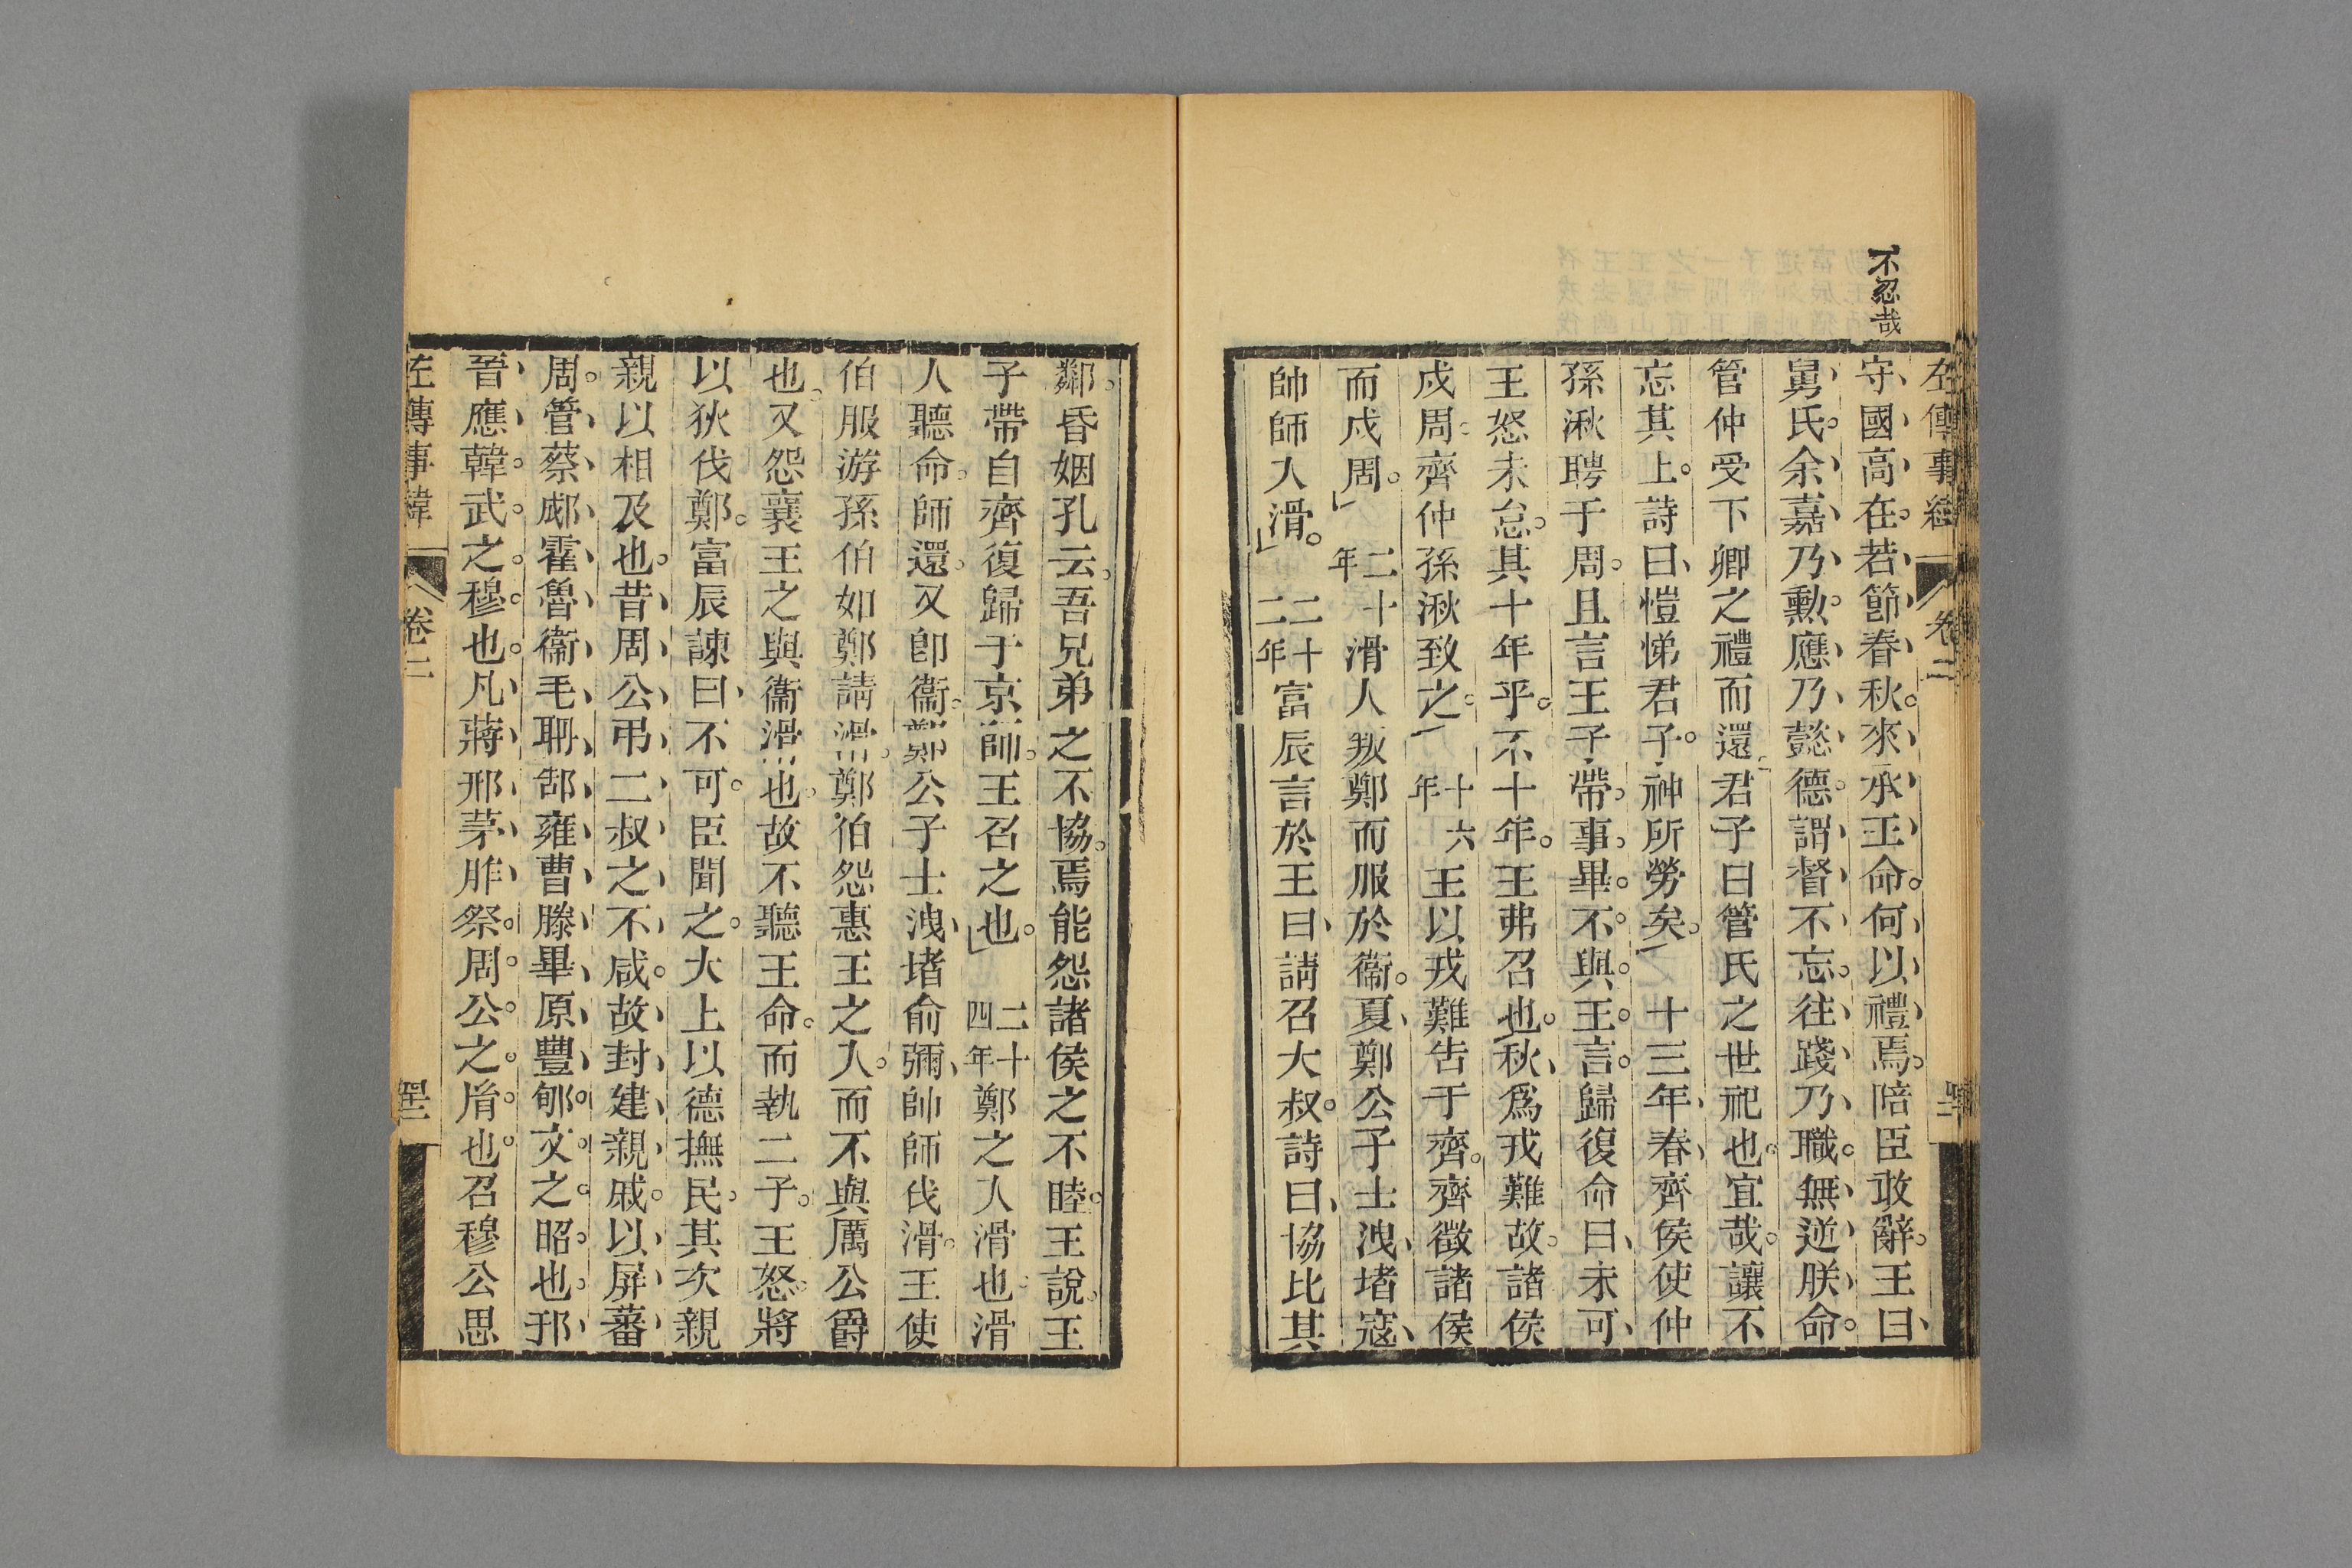 不忍哉
左傳事緯 卷二
守國高在若節春秋來承王命何以禮焉陪臣敢辭王曰
舅氏余嘉乃勳應乃懿德謂督不忘往踐乃職無逆朕命
管仲受下卿之禮而還君子曰管氏之世祀也宜哉讓不
忘其上詩曰愷悌君子神所勞矣 十三年春齊侯使仲
孫湫聘于周且言王子帶事畢不與王言歸復命曰未可
王怒未怠其十年乎不十年王弗召也秋為戎難故諸侯
戍周齊仲孫湫致之 十六年王以戎難告于齊齊徵諸侯
而戍周 二十年滑人叛鄭而服於衞夏鄭公子士洩堵寇
帥師入滑 二十二年富辰言於王曰請召大叔詩曰協比其
鄰昏姻孔云吾兄弟之不協焉能怨諸侯之不睦王說王
子帶自齊復歸于京師王召之也 二十四年鄭之入滑也滑
人聽命師還又卽衞鄭公子士洩堵俞彌帥師伐滑王使
伯服游孫伯如鄭請滑鄭伯怨惠王之入而不與厲公爵
也又怨襄王之與衞滑也故不聽王命而執二子王怒將
以狄伐鄭富辰諫曰不可臣聞之大上以德撫民其次親
親以相及也昔周公弔二叔之不咸故封建親戚以屏蕃
周管蔡郕霍魯衞毛聃郜雍曹滕畢原豐郇文之昭也邘
晉應韓武之穆也凡蔣邢茅胙祭周公之胤也召穆公思
左傳事緯 卷二